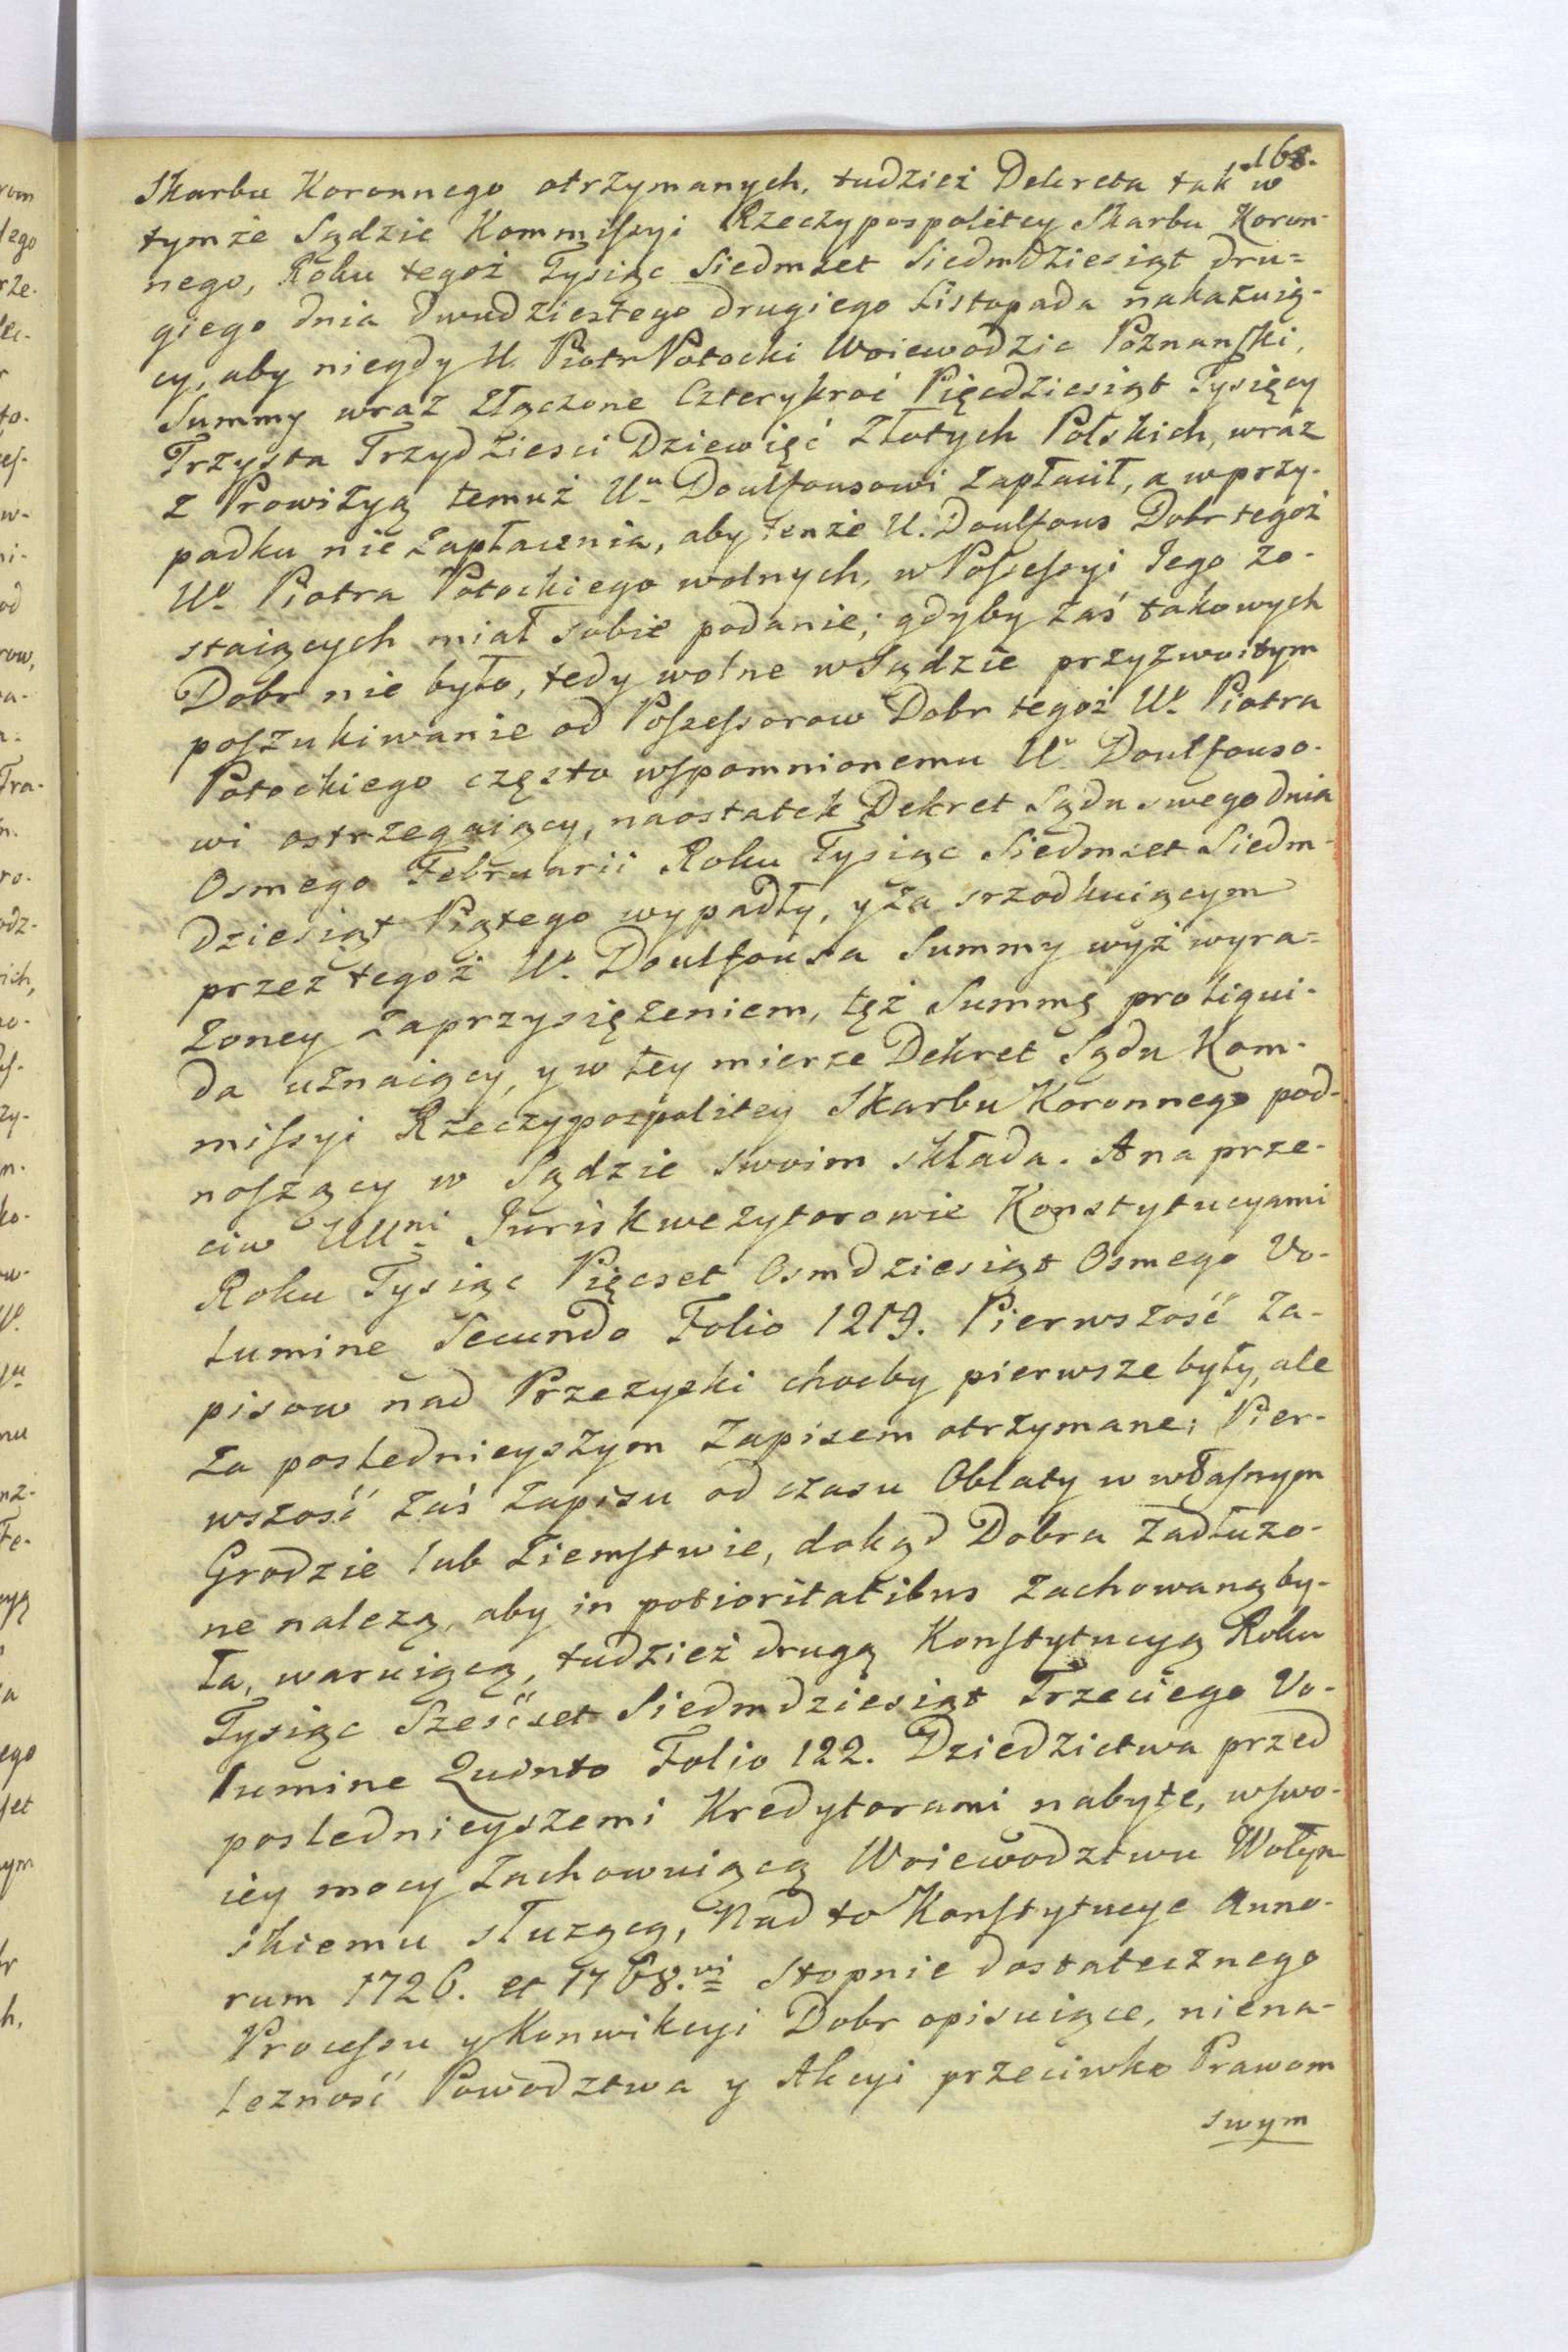 168.
Skarbu Koronnego otrzymanych, tudzież Dekreta tak w
tymże Sądzie Kommissyi Rzeczypospolitey Skarbu Koron-
nego, Roku tegoż Tysiąc Siedmset Siedmdziesiąt dru=
giego dnia dwudziestego drugiego Listopada nakazuią-
cy, aby niegdy U. Piotr Potocki Woiewodzic Poznanski,
Summy wraz złączone Czterykroć Pięcdziesiąt Tysięcy
Trzysta Trzydziesci Dziewięć Złotych Polskich, wraz
z Prowizyą temuż Uu Doulfousowi zapłacił, a wprzy-
padku nie zapłacenia, aby tenże U. Doulfous Dobr tegoż
Uo Piotra Potockiego wolnych, w Possessyi Jego zo-
staiących miał sobie podanie; gdyby zaś takowych
Dobr nie było, tedy wolne w Sądzie przyzwoitym
poszukiwanie od Possessorow Dobr tegoż Uo Piotra
Potockiego często wspomnionemu Uu Doulfouso-
wi ostrzegaiący, naostatek Dekret Sądu swego dnia
Osmego Februarii Roku Tysiąc Siedmset Siedm-
dziesiąt Piątego wypadły, y za srzodkuiącym
przez tegoż Uo Doulfousa Summy wyż wyra=
zoney zaprzysiężeniem, tęż Summę pro liqui-
da uznaiący, y w tey mierze Dekret Sądu Kom-
missyi Rzeczypospolitey Skarbu Koronnego pod-
noszący w Sądzie swoim składa. A na prze-
ciw UUni Juriskwezytorowie Konstytucyami
Roku Tysiąc Pięcset Osmdziesiąt Osmego Vo-
lumine Secundo Folio 1219. Pierwszość Za-
pisow nad Przezyski choćby pierwsze były, ale
za poslednieyszym Zapisem otrzymane; Pier-
wszość zaś zapisu od czasu Oblaty w własnym
Grodzie lub Ziemstwie, dokąd Dobra zadłuzo-
ne nalezą, aby in potioritatibus zachowaną by-
ła, waruiącą, tudzież drugą Konstytucyą Roku
Tysiąc Sześćset Siedmdziesiąt Trzeciego Vo-
lumine Quinto Folio 122. Dziedzictwa przed
poslednieyszemi Kredytorami nabyte, wswo-
iey mocy zachowuiącą Woiewodztwu Wołyn-
skiemu słuzącą, Nad to Konstytucye Anno-
rum 1726. et 1768.vi Stopnie dostatecznego
Processu y Konwikcyi Dobr opisuiące, niena-
lezność Powodztwa y Akcyi przeciwko Prawom
swym